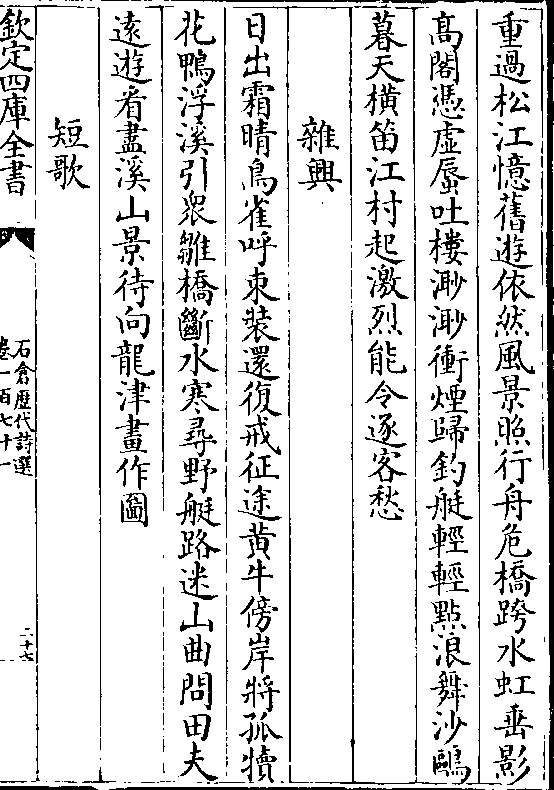 重過松江憶舊遊依然風景照行舟危橋跨水虹垂影
髙閣憑虛蜃吐樓渺渺衝煙歸釣艇輕輕點浪舞沙鷗
暮天横笛江村起激烈能令逐客愁
雜興
日出霜晴鳥雀呼束裝還復戒征途黄牛傍岸將孤犢
花鴨浮溪引衆雛橋斷水寒尋野艇路迷山曲問田夫
逺遊看盡溪山景待向龍津畫作圖
短歌
欽定四庫全書
石倉歷代詩選
卷一百七十一
二十七